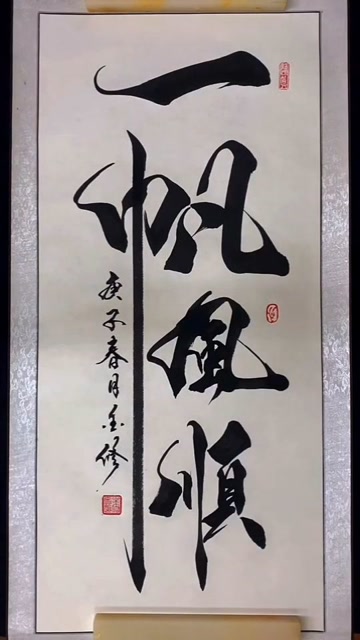 一帆風順
庚子春月